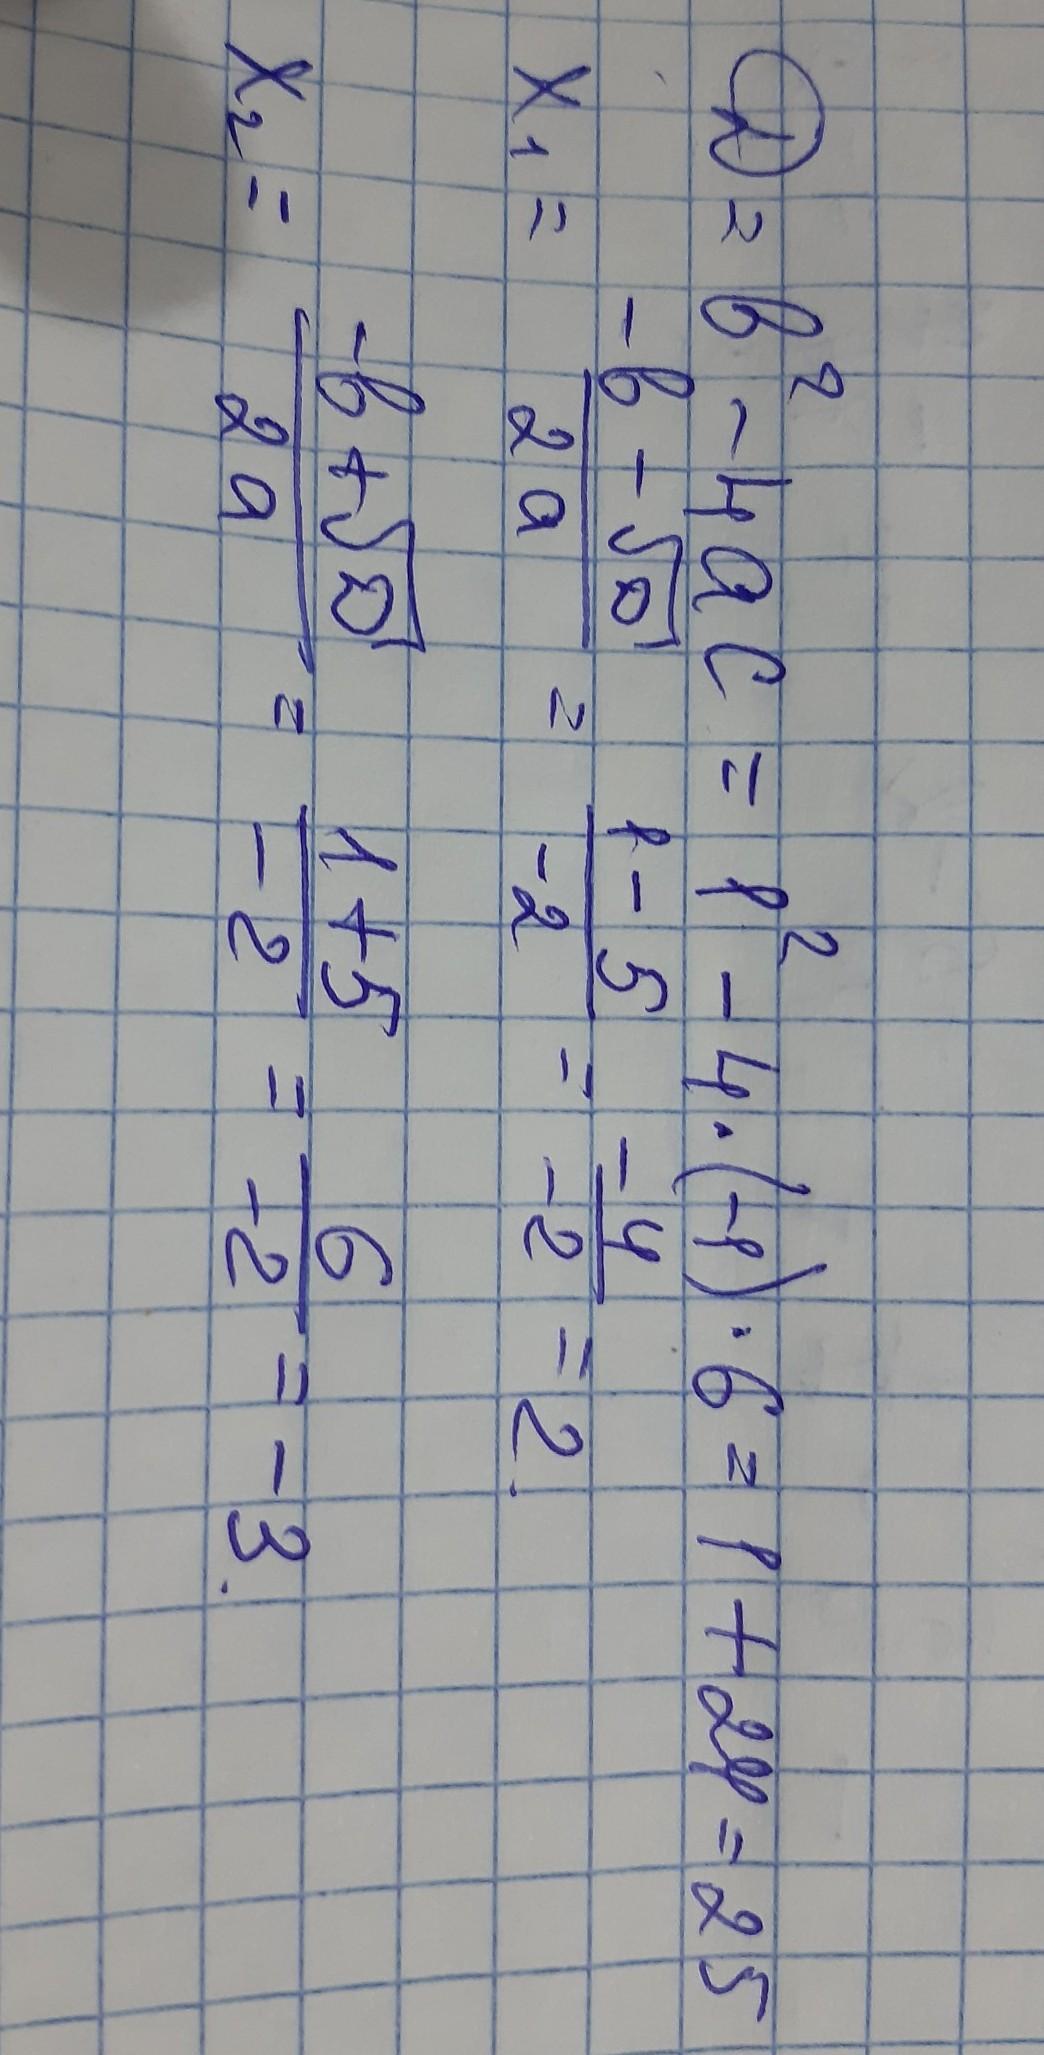 D = b² - 4ac = 1² - 4·(-1)·6 = 1 + 24 = 25
x₁ = (-b - √D)/(2a) = (1 - 5)/(-2) = (-4)/(-2) = 2.
x₂ = (-b + √D)/(2a) = (1 + 5)/(-2) = 6/(-2) = -3.